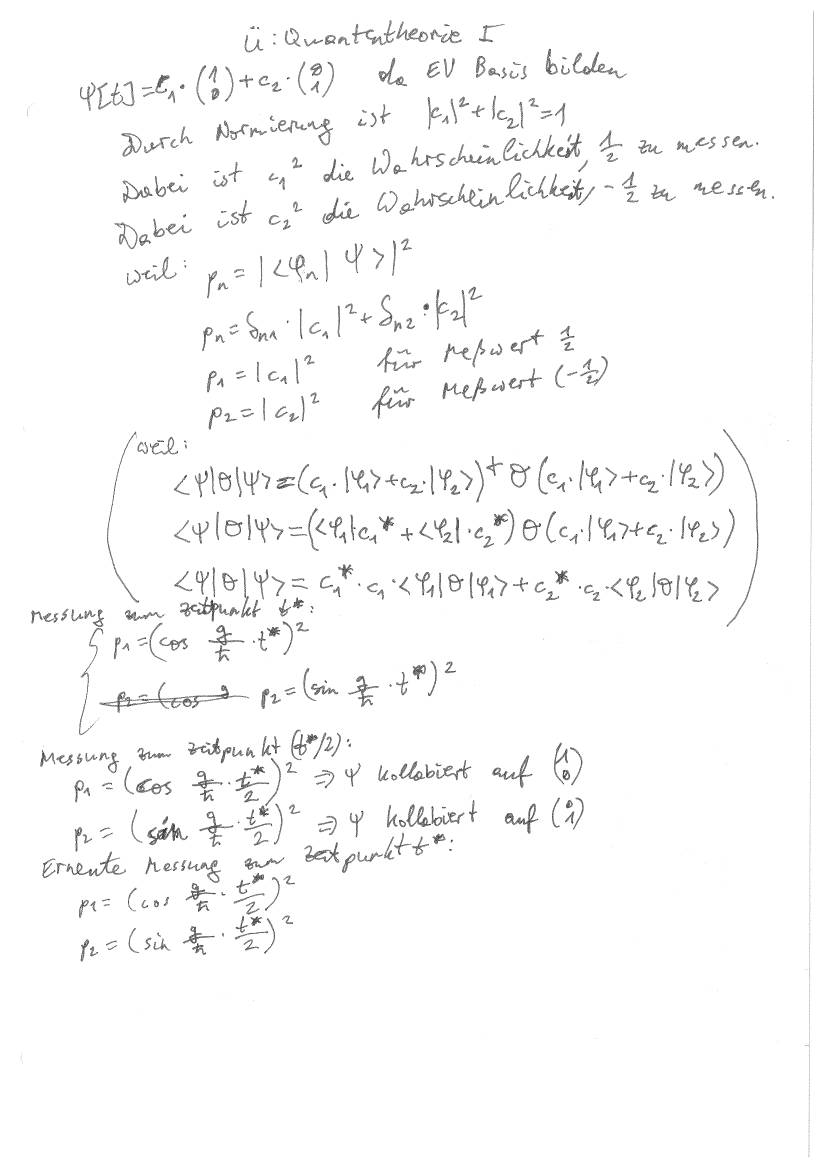 Ü: Quantentheorie I
Ψ[t] = c₁ · (1 0) + c₂ · (0 1) da EV Basis bilden
Durch Normierung ist |c₁|² + |c₂|² = 1
Dabei ist c₁² die Wahrscheinlichkeit, 1/2 zu messen.
Dabei ist c₂² die Wahrscheinlichkeit, -1/2 zu messen.
weil: pₙ = |<φₙ|Ψ>|²
pₙ = δₙ₁ · |c₁|² + δₙ₂ · |c₂|²
p₁ = |c₁|² für Meßwert 1/2
p₂ = |c₂|² für Meßwert (-1/2)
weil:
<Ψ|θ|Ψ> = (c₁·|φ₁> + c₂·|φ₂>)† θ (c₁·|φ₁> + c₂·|φ₂>)
<Ψ|θ|Ψ> = (<φ₁|·c₁* + <φ₂|·c₂*) θ (c₁·|φ₁> + c₂·|φ₂>)
<Ψ|θ|Ψ> = c₁* · c₁ · <φ₁|θ|φ₁> + c₂* · c₂ · <φ₂|θ|φ₂>
Messung zum Zeitpunkt t*:
p₁ = (cos g/ħ · t*)²
p₂ = (cos g p₂ = (sin g/ħ · t*)²
Messung zum Zeitpunkt (t*/2):
p₁ = (cos g/ħ · t*/2)² ⇒ Ψ kollabiert auf (1 0)
p₂ = (sin g/ħ · t*/2)² ⇒ Ψ kollabiert auf (0 1)
Erneute Messung zum Zeitpunkt t*:
p₁ = (cos g/ħ · t*/2)²
p₂ = (sin g/ħ · t*/2)²